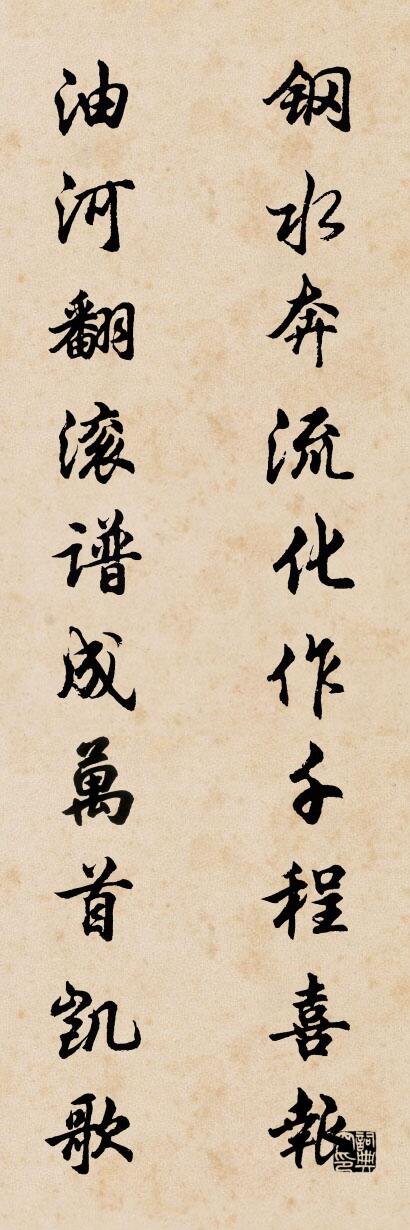 鋼水奔流化作千程喜報
油河翻滚谱成萬首凯歌